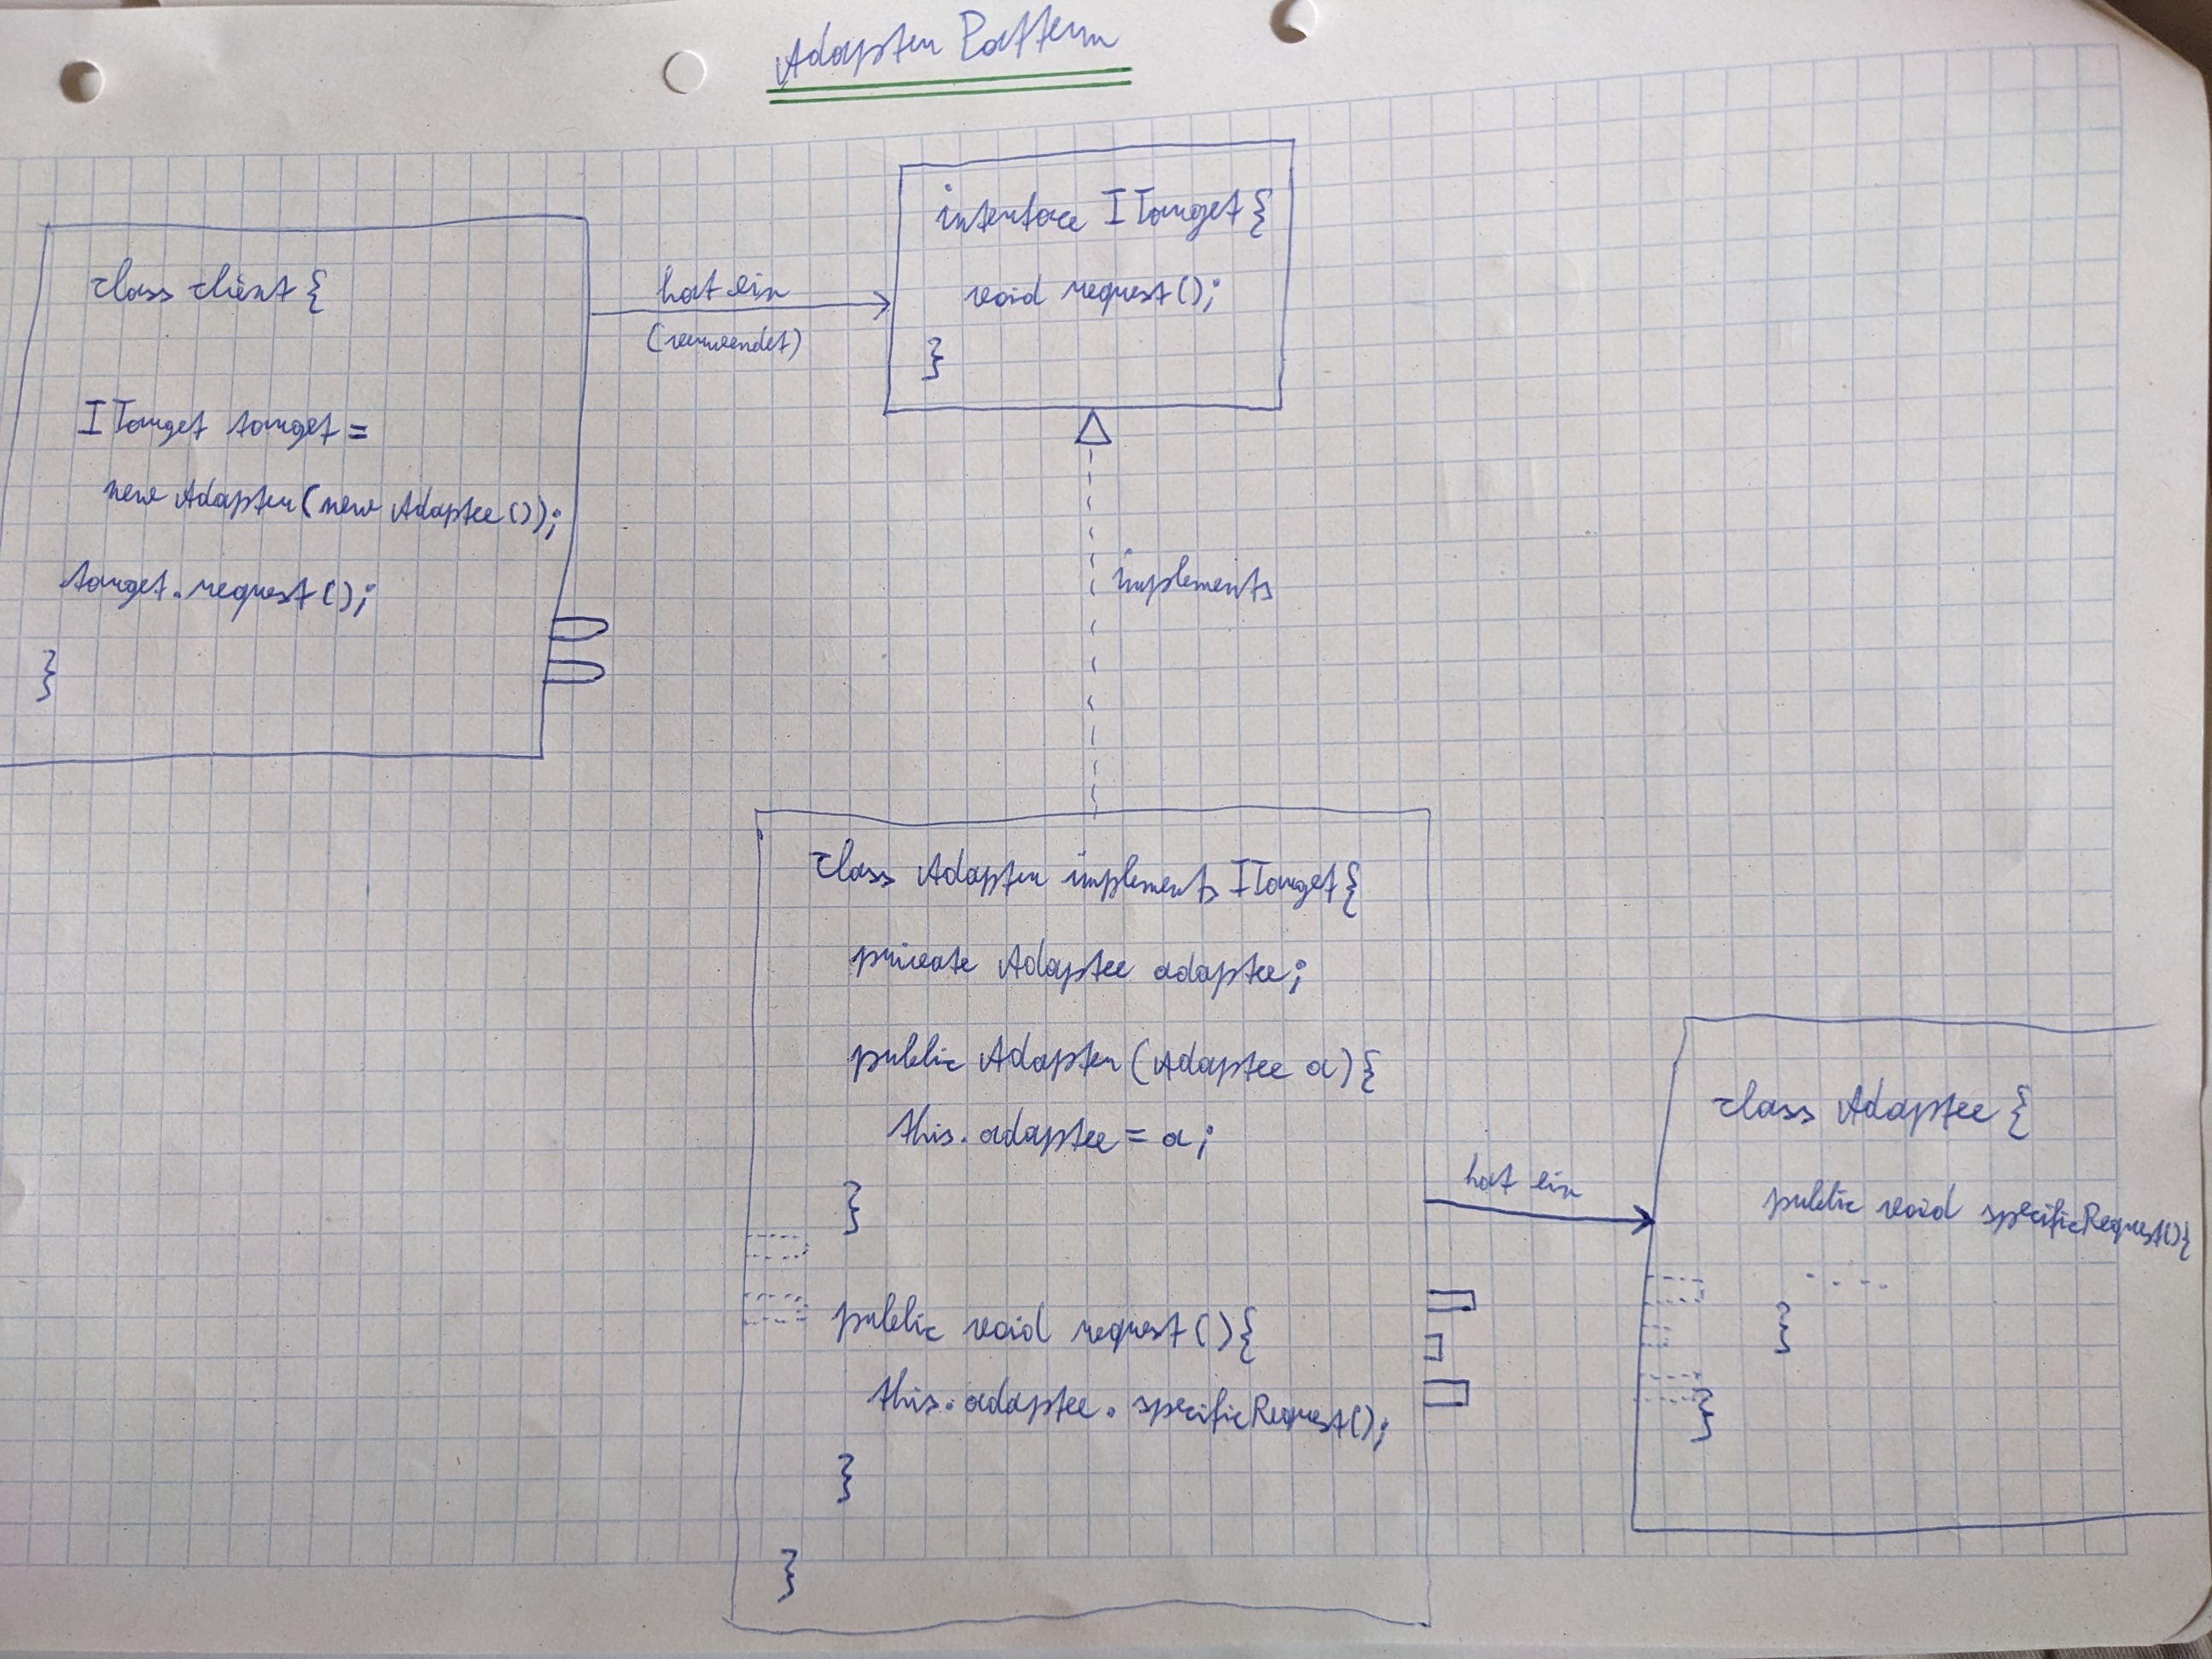 Adapter Pattern
class Client {
ITarget target =
new Adapter(new Adaptee());
target.request();
}
hat ein
(verwendet)
interface ITarget {
void request();
}
implements
class Adapter implements ITarget {
private Adaptee adaptee;
public Adapter (Adaptee a) {
this.adaptee = a;
}
public void request() {
this.adaptee.specificRequest();
}
}
hat ein
class Adaptee {
public void specificRequest() {
....
}
}